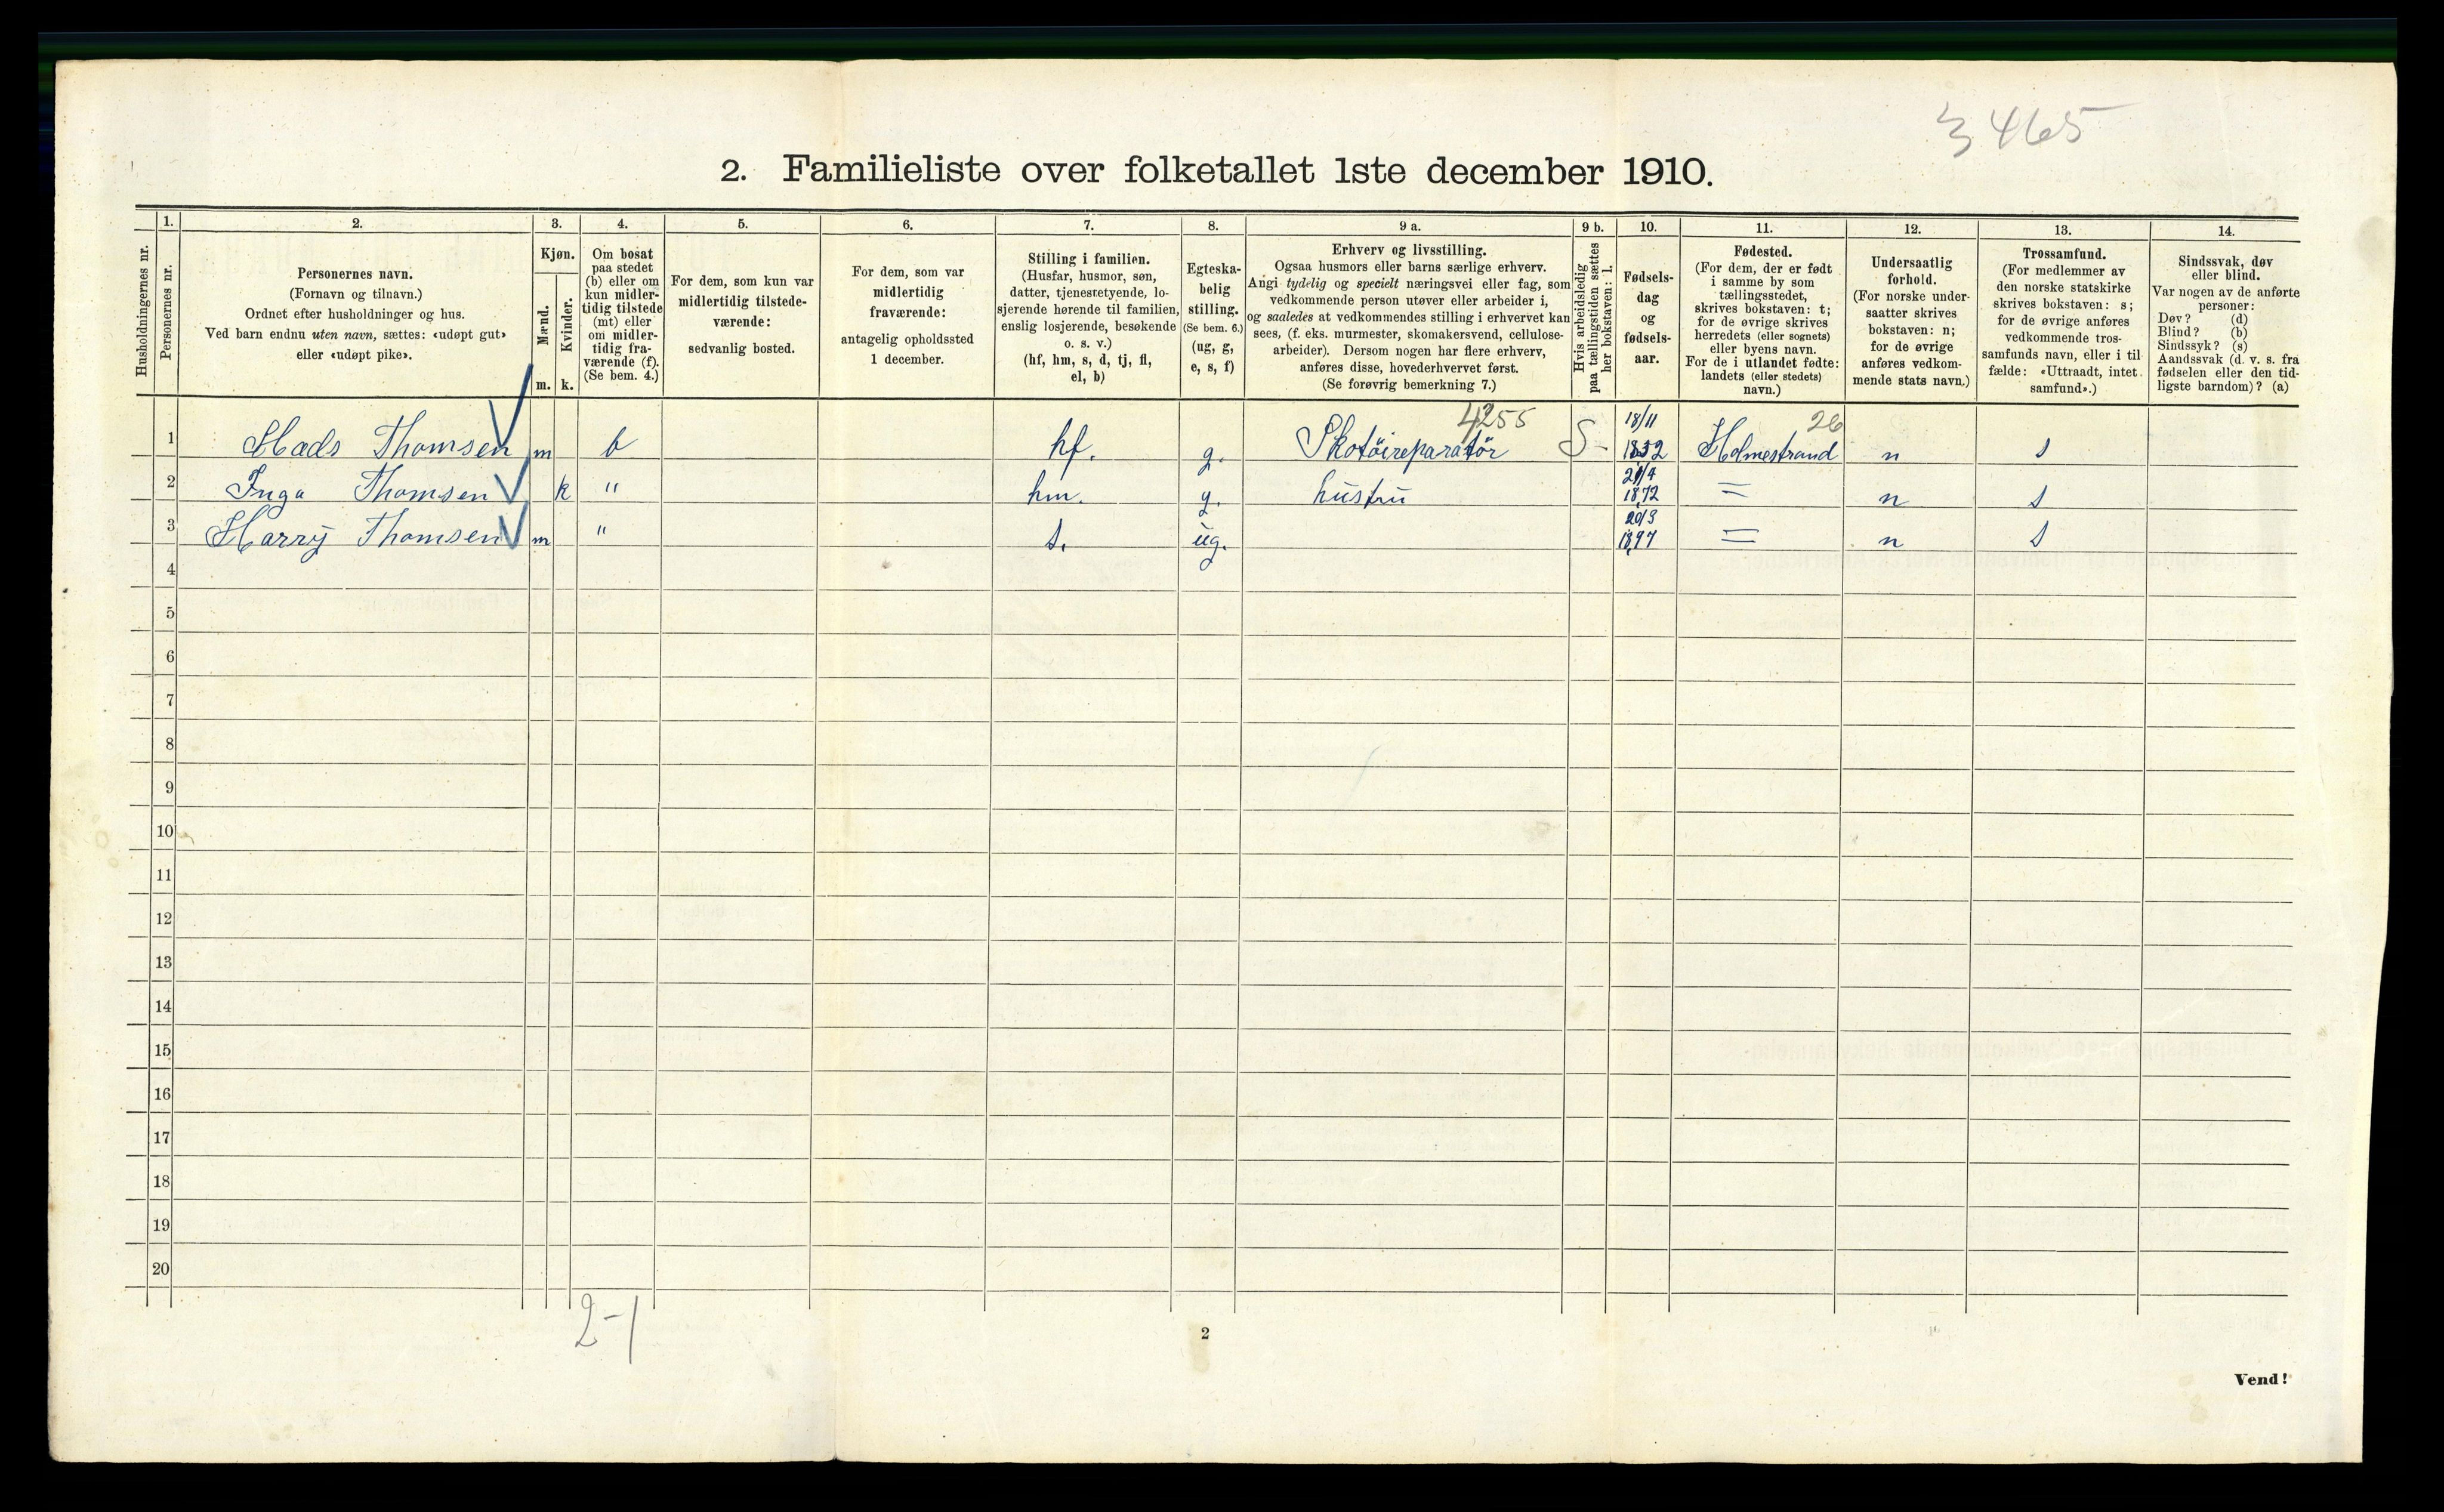 3465
2. Familieliste over folketallet 1ste december 1910.
Husholdningernes nr.
1.
Personernes nr.
2.
Personernes navn.
(Fornavn og tilnavn.)
Ordnet efter husholdninger og hus.
Ved barn endnu uten navn, sættes: «udøpt gut»
eller «udøpt pike».
3.
Kjøn.
Mænd.
m.
Kvinder.
k.
4.
Om bosat
paa stedet
(b) eller om
kun midler-
tidig tilstede
(mt) eller
om midler-
tidig fra-
værende (f).
(Se bem. 4.)
5.
For dem, som kun var
midlertidig tilstede-
værende:
sedvanlig bosted.
6.
For dem, som var
midlertidig
fraværende:
antagelig opholdssted
1 december.
7.
Stilling i familien.
(Husfar, husmor, søn,
datter, tjenestetyende, lo-
sjerende hørende til familien,
enslig losjerende, besøkende
o. s. v.)
(hf, hm, s, d, tj, fl,
el, b)
8.
Egteska-
belig
stilling.
(Se bem. 6.)
(ug, g,
e, s, f)
9 a.
Erhverv og livsstilling.
Ogsaa husmors eller barns særlige erhverv.
Angi tydelig og specielt næringsvei eller fag, som
vedkommende person utøver eller arbeider i,
og saaledes at vedkommendes stilling i erhvervet kan
sees, (f. eks. murmester, skomakersvend, cellulose-
arbeider). Dersom nogen har flere erhverv,
anføres disse, hovederhvervet først.
(Se forøvrig bemerkning 7.)
9 b.
Hvis arbeidsledig
paa tællingstiden sættes
her bokstaven: l.
10.
Fødsels-
dag
og
fødsels-
aar.
11.
Fødested.
(For dem, der er født
i samme by som
tællingsstedet,
skrives bokstaven: t;
for de øvrige skrives
herredets (eller sognets)
eller byens navn.
For de i utlandet fødte:
landets (eller stedets)
navn.)
12.
Undersaatlig
forhold.
(For norske under-
saatter skrives
bokstaven: n;
for de øvrige
anføres vedkom-
mende stats navn.)
13.
Trossamfund.
(For medlemmer av
den norske statskirke
skrives bokstaven: s;
for de øvrige anføres
vedkommende tros-
samfunds navn, eller i til-
fælde: «Uttraadt, intet
samfund».)
14.
Sindssvak, døv
eller blind.
Var nogen av de anførte
personer:
Døv? (d)
Blind? (b)
Sindssyk? (s)
Aandssvak (d. v. s. fra
fødselen eller den tid-
ligste barndom)? (a)
4255 18/11 26
1 Mads Thomsen m b hf. g. Skotöireparatör S- Holmestrand n s
2 Inga Thomsen k " hm. g. hustru 1872 = n s
20/3
3 Harry Thomsen m " s. ug. 1897 = n s
4
5
6
7
8
9
10
11
12
13
14
15
16
17
18
19
20
2-1
2
Vend!